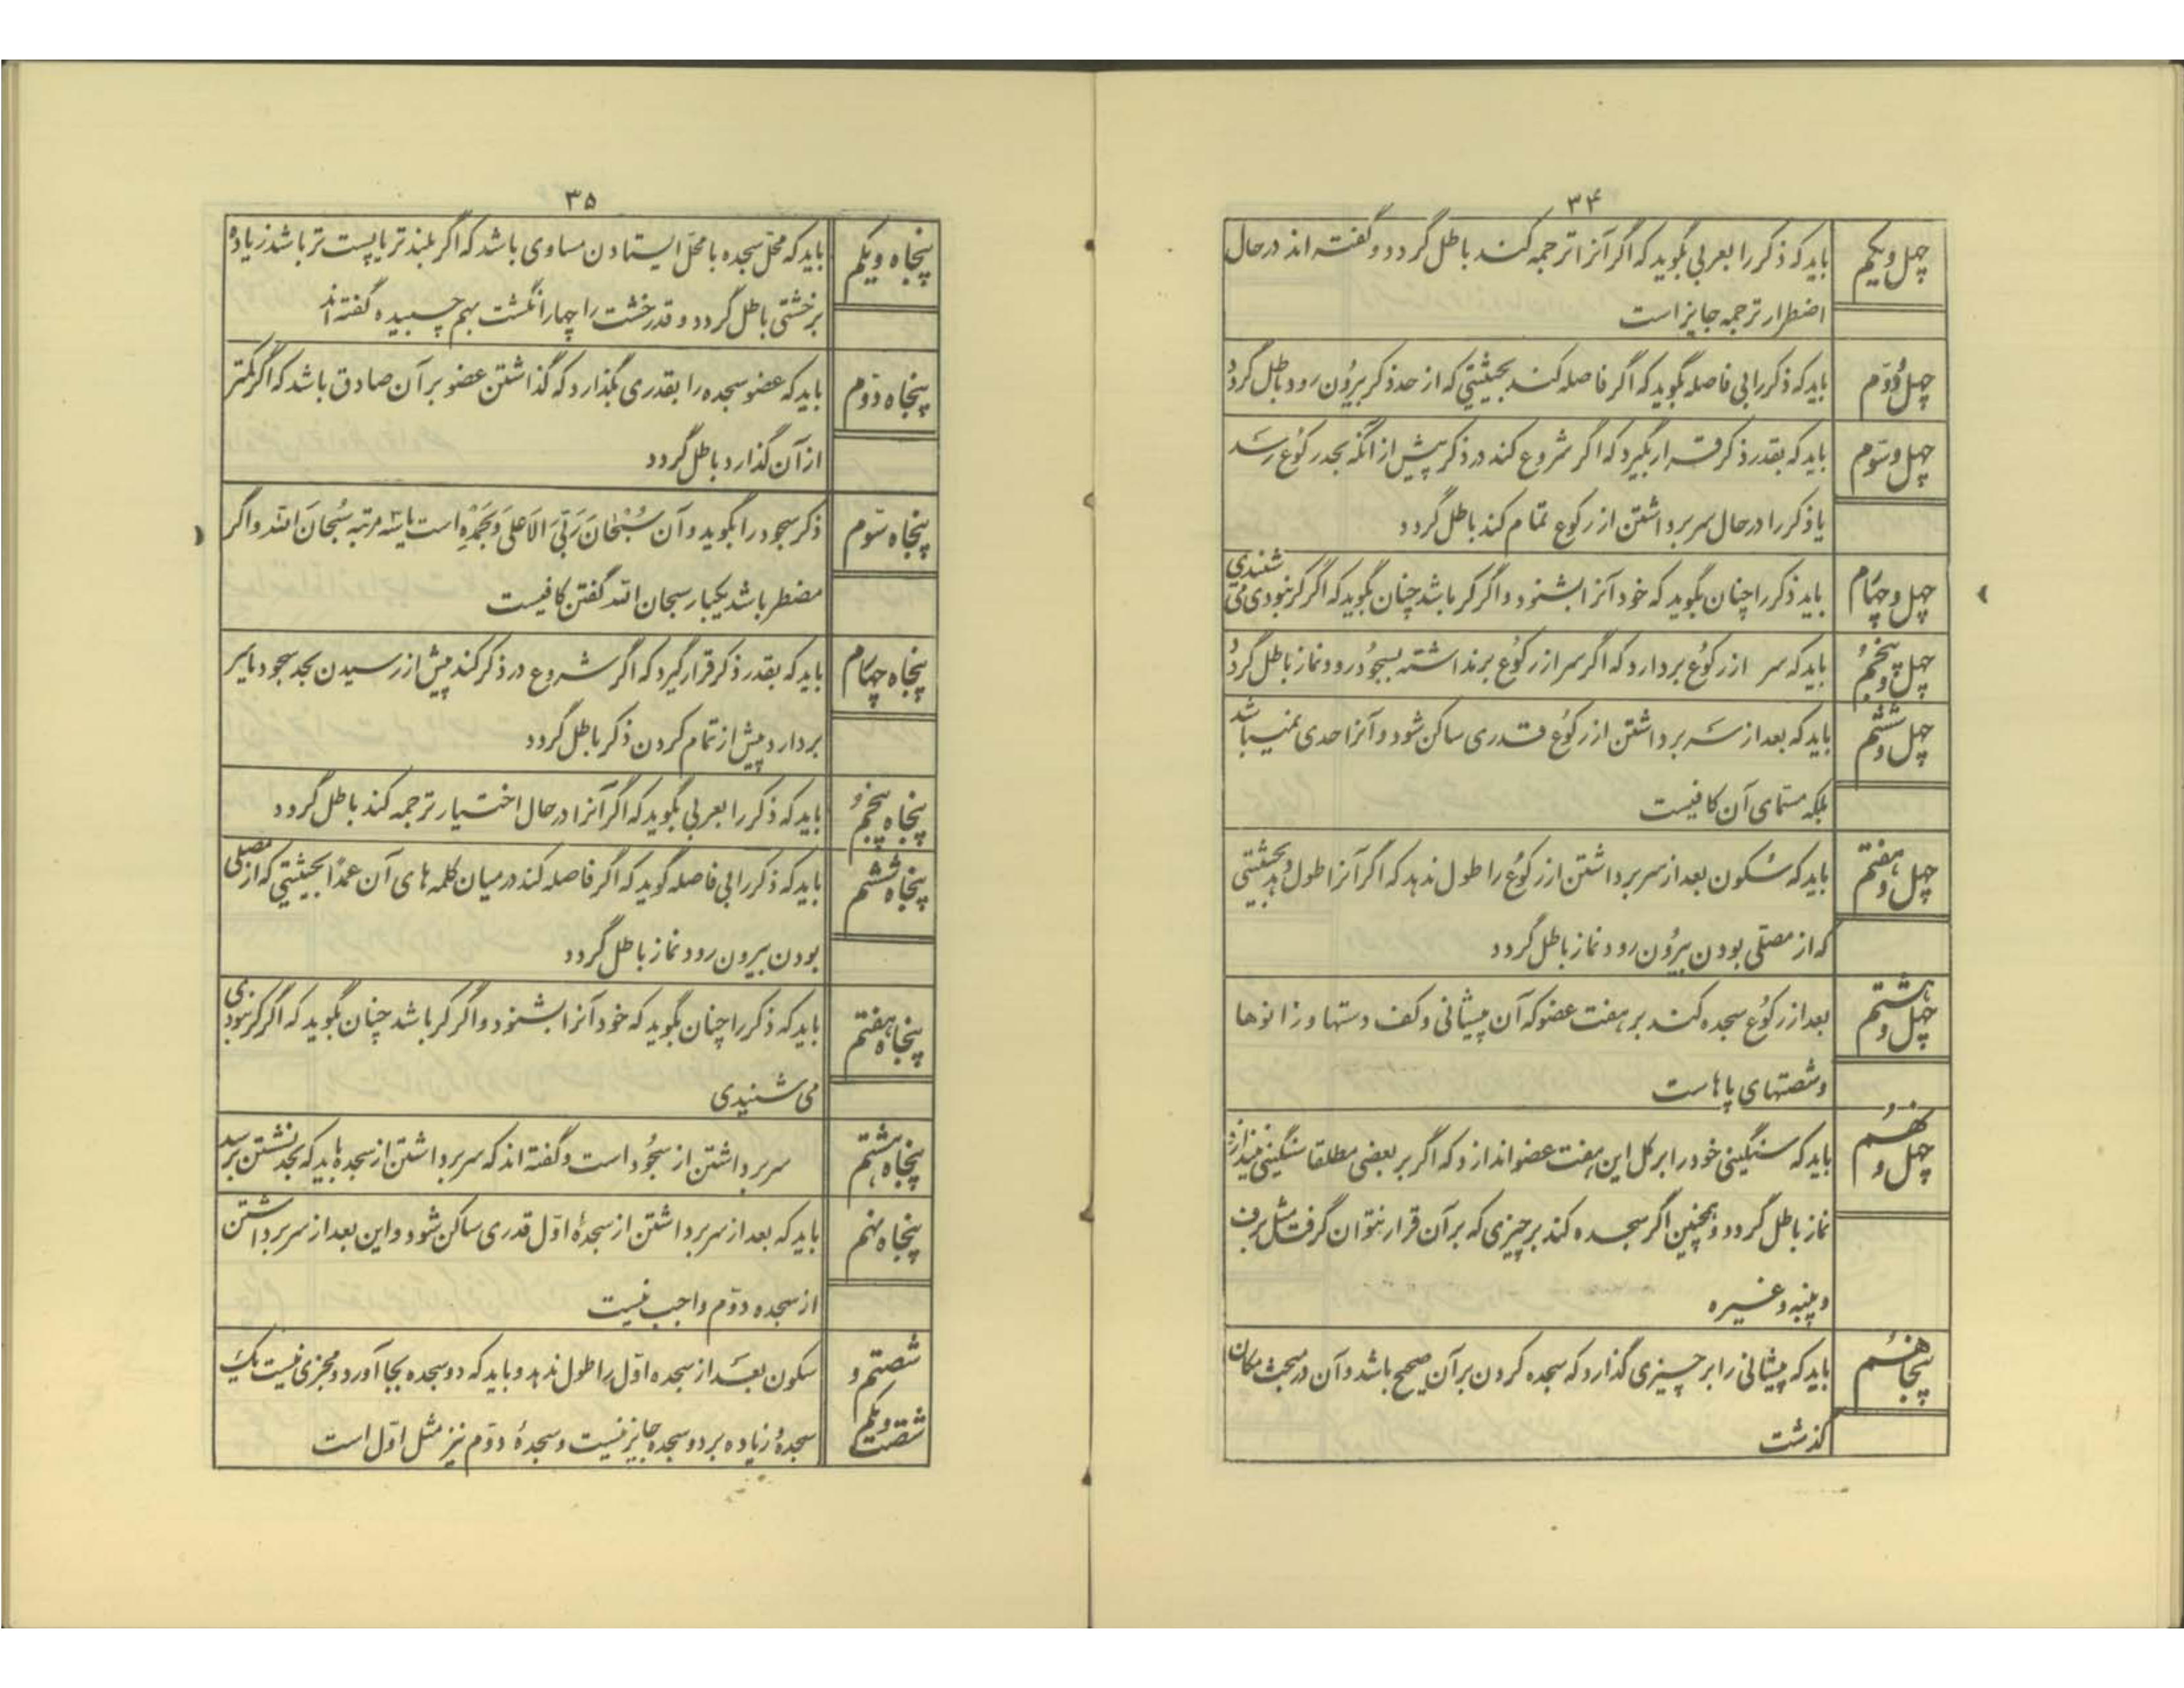 ۳۴
چهل و یکم
باید که ذکر را بعربی بگوید که اگر آنرا ترجمه کند باطل گردد و گفته اند در حال
اضطرار ترجمه جایز است
چهل و دوّم
باید که ذکر را بی فاصله بگوید که اگر فاصله کند بحیثیتی که از حد ذکر بیرُون رود باطل گردد
چهل و سوّم
باید که بقدر ذکر قرار بگیرد که اگر شروع کند در ذکر پیش از آنکه بحد رکُوع رسد
یا ذکر را در حال سر برداشتن از رکوع تمام کند باطل گردد
چهل و چهارم
باید ذکر را چنان بگوید که خود آنرا بشنود و اگر کر باشد چنان بگوید که اگر کر نبودی می شنیدی
چهل و پنجم
باید که سر از رکوُع بردارد که اگر سر از رکوُع برنداشته بسجوُد رود نماز باطل گردد
چهل و ششم
باید که بعد از سر برداشتن از رکوُع قدری ساکن شود و آنرا حدی نمیباشد
بلکه مسمّای آن کافیست
چهل و هفتم
باید که سُکون بعد از سر برداشتن از رکوُع را طول ندهد که اگر آنرا طول دهد بحیثیتی
که از مصلّی بودن بیرُون رود نماز باطل گردد
چهل و هشتم
بعد از رکوُع سجده کند بر هفت عضو که آن پیشانی و کف دستها و زانوها
و شصتهای پاهاست
چهل و نهُم
باید که سنگینی خود را بر کل این هفت عضو اندازد که اگر بر بعضی مطلقا سنگینی نیندازد
نماز باطل گردد و همچنین اگر سجده کند بر چیزی که بر آن قرار نتوان گرفت مثل برف
و پنبه و غیره
پنجاهُم
باید که پیشانی را بر چیزی گذارد که سجده کردن بر آن صحیح باشد و آن در مبحث مکان
گذشت
۳۵
پنجاه و یکم
باید که محلّ سجده با محلّ ایستادن مساوی باشد که اگر بلندتر یا پست تر باشد زیاده
بر خشتی باطل گردد و قدر خشت را چهار انگشت بهم چسبیده گفته اند
پنجاه دوّم
باید که عضو سجده را بقدری بگذارد که گذاشتن عضو بر آن صادق باشد که اگر کمتر
از آن گذارد باطل گردد
پنجاه سوّم
ذکر سجود را بگوید و آن سُبْحَانَ رَبِّیَ الاَعلیٰ وَبِحَمْدِهِ است یا سه مرتبه سُبحَانَ الله و اگر
مضطر باشد یکبار سبحان الله گفتن کافیست
پنجاه چهارم
باید که بقدر ذکر قرار گیرد که اگر شروع در ذکر کند پیش از رسیدن بحد سجود یا سر
بردارد پیش از تمام کردن ذکر باطل گردد
پنجاه پنجم
باید که ذکر را بعربی بگوید که اگر آنرا در حال اختیار ترجمه کند باطل گردد
پنجاه ششم
باید که ذکر را بی فاصله گوید که اگر فاصله کند در میان کلمه های آن عمداً بحیثیتی که از مصلی
بودن بیرون رود نماز باطل گردد
پنجاه هفتم
باید که ذکر را چنان بگوید که خود آنرا بشنود و اگر کر باشد چنان بگوید که اگر کر نبودی
می شنیدی
پنجاه هشتم
سر برداشتن از سجُود است و گفته اند که سر برداشتن از سجده باید که بحد نشستن برسد
پنجاه نهم
باید که بعد از سر برداشتن از سجدهٔ اوّل قدری ساکن شود و این بعد از سر برداشتن
از سجده دوّم واجب نیست
شصتم و
سکون بعد از سجده اوّل را طول ندهد و باید که دو سجده بجا آورد و مجزی نیست یک
شصت و یکم
سجده و زیاده بر دو سجده جایز نیست و سجدهٔ دوّم نیز مثل اوّل است